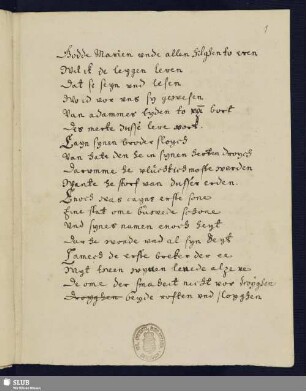 1
Godde Marien unde allen hilghen to eren
Wil ik de leyen leren
Dat se seyn und lesen
Wo id vor uns sy gewesen
Van adammes tyden to bort
Des merke dusse leve wort.
Caym synen broder sloych
Van hate den he in synen herten droych
Darumme he vluchtich moste werden
Wente he starf van dusser erden.
Enoch was cayns erste sone
Eine stat ome buwede schone
Und synes namen enoch heyt
Dar he wonde und al syn deyt
Lamech de erste breker der ee
Nam twen wyven levede alze we
De ome der smaheit nicht vor droyghen
droyghen beyde rofften und sloyghen
SLUB
Wir führen Wissen.